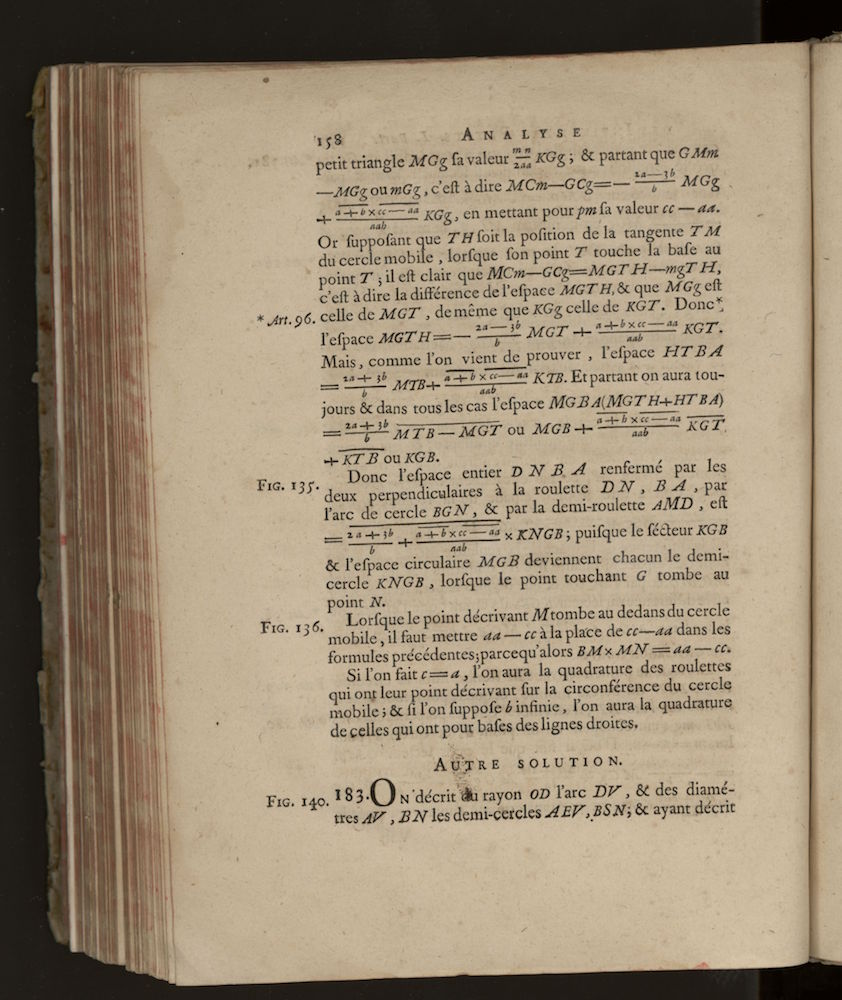 158 ANALYSE
petit triangle MGg ſa valeur mn/2aa KGg ; & partant que GMm
—MGg ou mGg , c'eſt à dire MCm—GCg=— 2a—3b/b MGg
+ a+b×cc—aa/aab KGg, en mettant pour pm ſa valeur cc — aa.
Or ſuppoſant que TH ſoit la poſition de la tangente TM
du cercle mobile , lorſque ſon point T touche la baſe au
point T ; il eſt clair que MCm—GCg=MGTH—mgTH,
c'eſt à dire la différence de l'eſpace MGTH, & que MGg eſt
* Art. 96. celle de MGT , de même que KGg celle de KGT. Donc*,
l'eſpace MGTH=— 2a—3b/b MGT + a+b×cc—aa/aab KGT.
Mais, comme l'on vient de prouver , l'eſpace HTBA
= 2a+3b/b MTB+ a+b×cc—aa/aab KTB. Et partant on aura tou-
jours & dans tous les cas l'eſpace MGBA(MGTH+HTBA)
= 2a+3b/b MTB—MGT ou MGB+ a+b×cc—aa/aab KGT
+KTB ou KGB.
Donc l'eſpace entier DNBA renfermé par les
FIG. 135. deux perpendiculaires à la roulette DN , BA , par
l'arc de cercle BGN, & par la demi-roulette AMD , eſt
= 2a+3b/b + a+b×cc—aa/aab × KNGB ; puiſque le ſécteur KGB
& l'eſpace circulaire MGB deviennent chacun le demi-
cercle KNGB , lorſque le point touchant G tombe au
point N.
Lorſque le point décrivant M tombe au dedans du cercle
FIG. 136. mobile, il faut mettre aa — cc à la place de cc—aa dans les
formules précédentes; parcequ'alors BM×MN=aa — cc.
Si l'on fait c=a , l'on aura la quadrature des roulettes
qui ont leur point décrivant ſur la circonférence du cercle
mobile ; & ſi l'on ſuppoſe b infinie , l'on aura la quadrature
de celles qui ont pour baſes des lignes droites.
AUTRE SOLUTION.
FIG. 140. 183. ON décrit du rayon OD l'arc DV , & des diamé-
tres AV , BN les demi-cercles AEV, BSN; & ayant décrit